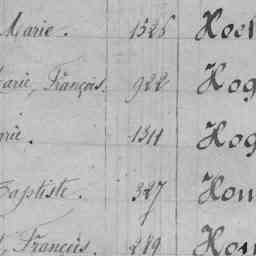 Marie. 1528 Hoel
Marie, François. 922 Hog
Marie. 1511 Hog
Baptiste. 327 Hou
François. 289 Hou